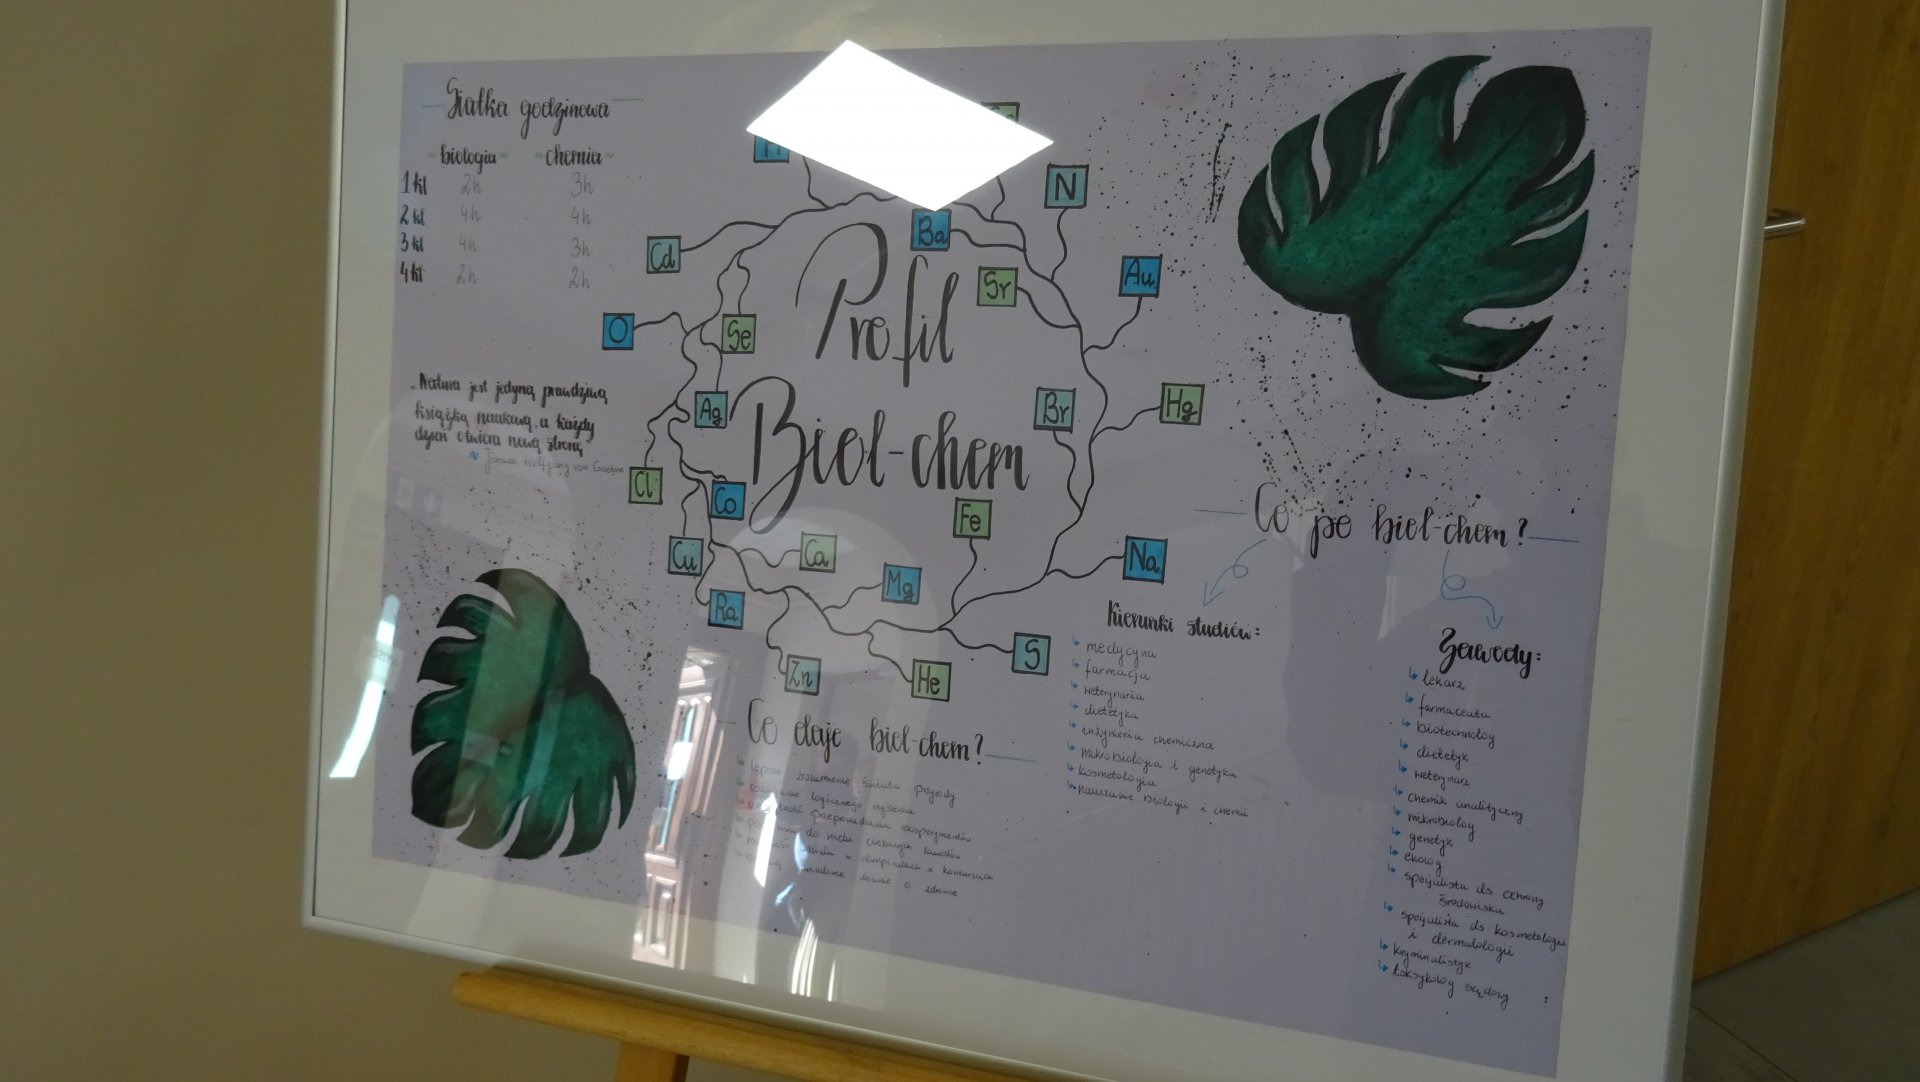 Siatka godzinowa
biologia chemia
1 kl 2h 3h
2 kl 4h 4h
3 kl 4h 3h
4 kl 2h 2h
„Natura jest jedyną prawdziwą
książką naukową, a każdy
dzień otwiera nową stronę
Johann Wolfgang von Goethe
N
Ba
Cd
Au
Sr
O
Se
Ag
Br
Hg
Profil
Biol-chem
Cl
Co
Fe
Cu
Ca
Na
Mg
Ra
S
Zn
He
Co daje biol-chem?
lepsze zrozumienie świata przyrody
logicznego myślenia
przeprowadzania eksperymentów
do wielu ciekawych zawodów
udziału w olimpiadach i konkursach
dbanie o zdrowie
Co po biol-chem?
Kierunki studiów:
medycyna
farmacja
weterynaria
dietetyka
inżynieria chemiczna
mikrobiologia i genetyka
kosmetologia
nauczanie biologii i chemii
Zawody:
lekarz
farmaceuta
biotechnolog
dietetyk
weterynarz
chemik analityczny
mikrobiolog
genetyk
ekolog
specjalista ds ochrony
środowiska
specjalista ds kosmetologii
i dermatologii
kryminalistyk
toksykolog sądowy